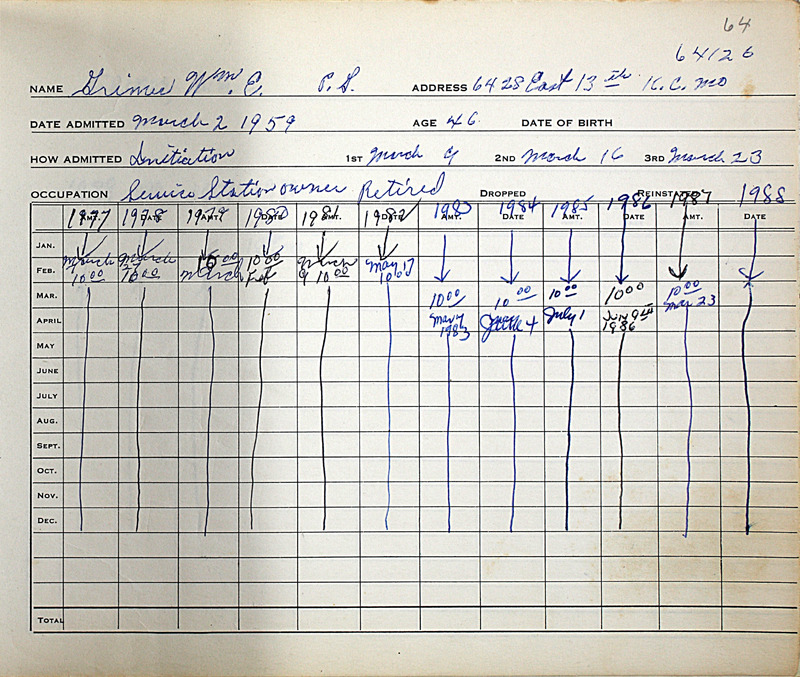 64
64126
NAME Grimes Wm. E. P.S. ADDRESS 6428 East 13th K.C. Mo
DATE ADMITTED March 2 1959 AGE 46 DATE OF BIRTH
HOW ADMITTED Initiation 1ST March 9 2ND March 16 3RD March 23
OCCUPATION Service Station owner Retired DROPPED REINSTATED
1977 1978 1979 1980 1981 1982 1983 1984 1985 1986 1987 1988
AMT. DATE AMT. DATE AMT. DATE AMT. DATE
JAN.
March March 15 00 10 00 March May 17
FEB. 10 00 10 00 March Feb 9 10 00 10 00
MAR. 10 00 10 00 10 00 10 00 10 00
Mar 23
APRIL May 7 June 4 July 1 9th
1983 1986
MAY
JUNE
JULY
AUG.
SEPT.
OCT.
NOV.
DEC.
TOTAL